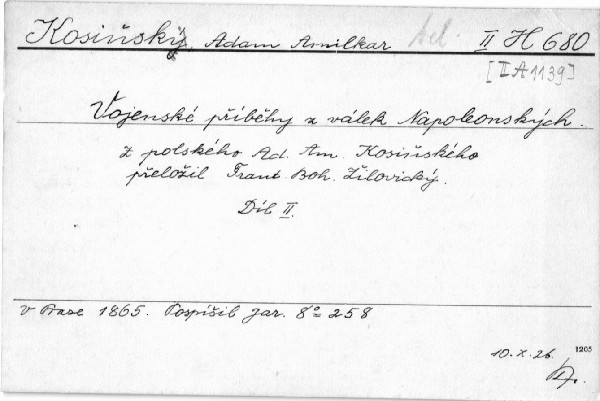 Kosiński, Adam Amilkar II H 680
[II A 1139]
Vojenské příběhy z válek Napoleonských.
Z polského Ad. Am. Kosińského
přeložil Frant. Boh. Žilovický.
Díl II.
v Praze 1865. Pospíšil Jar. 8° 258
10.X.26. 1205